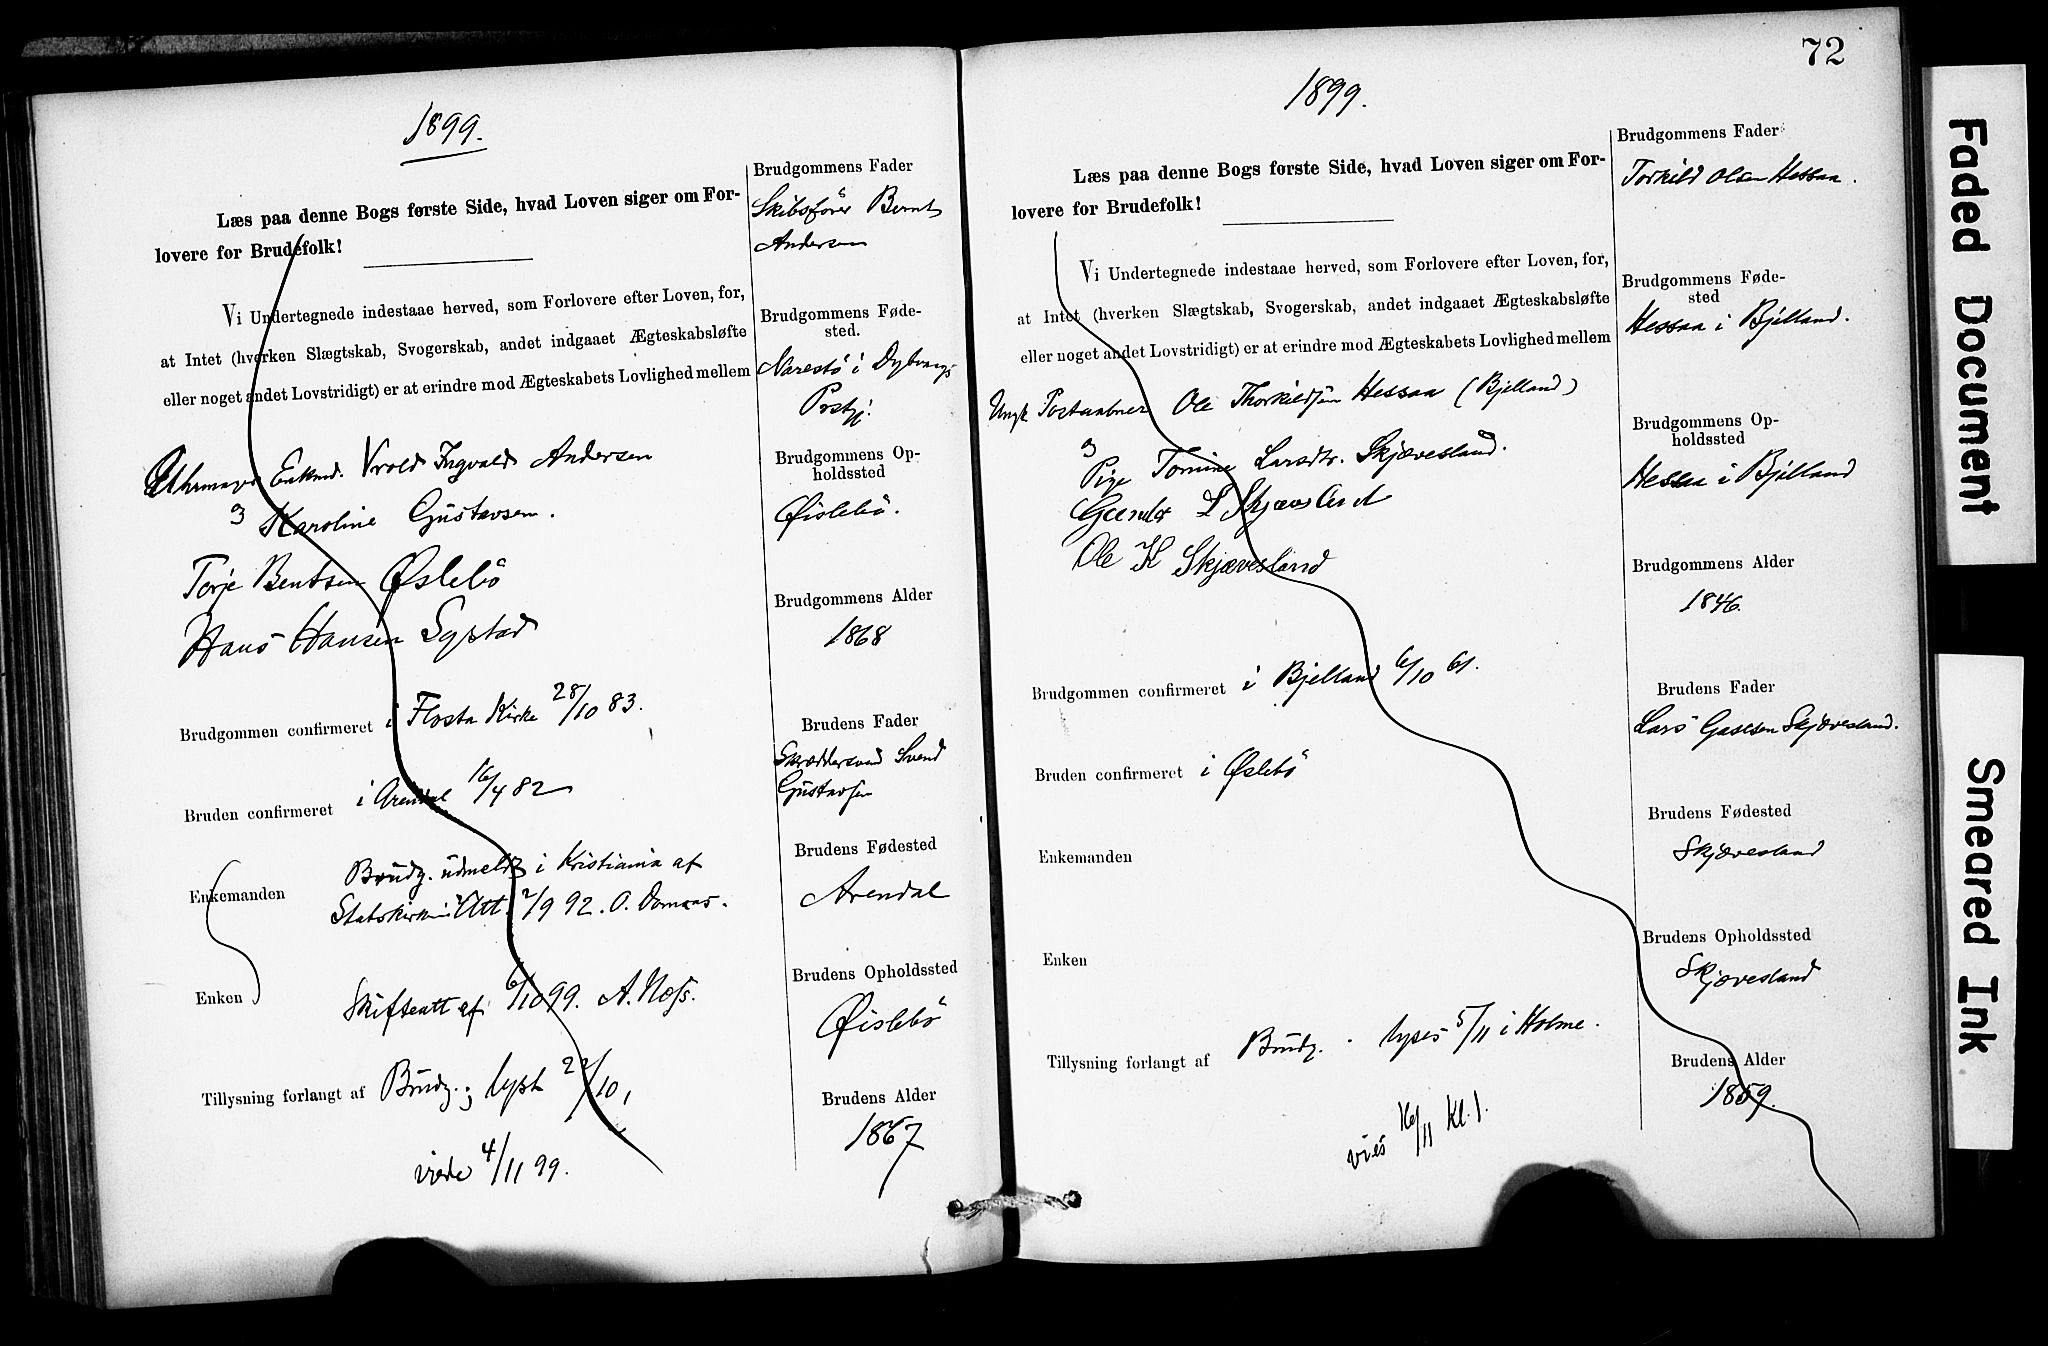 1899.
Læs paa denne Bogs første Side, hvad Loven siger om For-
lovere for Brudefolk!
Vi Undertegnede indestaae herved, som Forlovere efter Loven, for,
at Intet (hverken Slægtskab, Svogerskab, andet indgaaet Ægteskabsløfte
eller noget andet Lovstridigt) er at erindre mod Ægteskabets Lovlighed mellem
Uhrmager Enkmd. Vrold Ingvald Andersen
og Karoline Gustavsen.
Torje Bentsen Øslebö
Hans Hansen Systad
Brudgommen confirmeret i Flosta Kirke 28/10 83.
Bruden confirmeret i Arendal 16/4 82
Enkemanden
Brudg. udmeldt i Kristiania af
Statskirken Att. 2/9 92. O.
Enken
Skifteatt af 6/10 99. A.
Tillysning forlangt af Brudg.; lyst 22/10,
viede 4/11 99.
Brudgommens Fader
Skibsfører Bernt
Andersen
Brudgommens Føde-
sted.
Narestö i Dybvaags
Prstgj.
Brudgommens Op-
holdssted
Øislebö.
Brudgommens Alder
1868
Brudens Fader
Skræddersvend Svend
Gustavsen
Brudens Fødested
Arendal
Brudens Opholdssted
Øislebö
Brudens Alder
1867
72
1899.
Læs paa denne Bogs første Side, hvad Loven siger om For-
lovere for Brudefolk!
Vi Undertegnede indestaae herved, som Forlovere efter Loven, for,
at Intet (hverken Slægtskab, Svogerskab, andet indgaaet Ægteskabsløfte
eller noget andet Lovstridigt) er at erindre mod Ægteskabets Lovlighed mellem
Ungk Postaabner Ole Thorkildsen Hessaa (Bjelland)
og Pige Tomine Larsdtr. Skjævesland.
L Skjævsland
Ole K Skjævesland
Brudgommen confirmeret i Bjelland 6/10 61.
Bruden confirmeret i Øslebö
Enkemanden
Enken
Tillysning forlangt af Brudg. lyses 5/11 i Holme.
vies 16/11 Kl. 1.
Brudgommens Fader
Torkild Olsen Hessaa.
Brudgommens Føde-
sted
Hessaa i Bjelland.
Brudgommens Op-
holdssted
Hessaa i Bjelland
Brudgommens Alder
1846.
Brudens Fader
Lars Skjævesland.
Brudens Fødested
Skjævesland
Brudens Opholdssted
Skjævesland
Brudens Alder
1859.
Faded Document
Smeared Ink